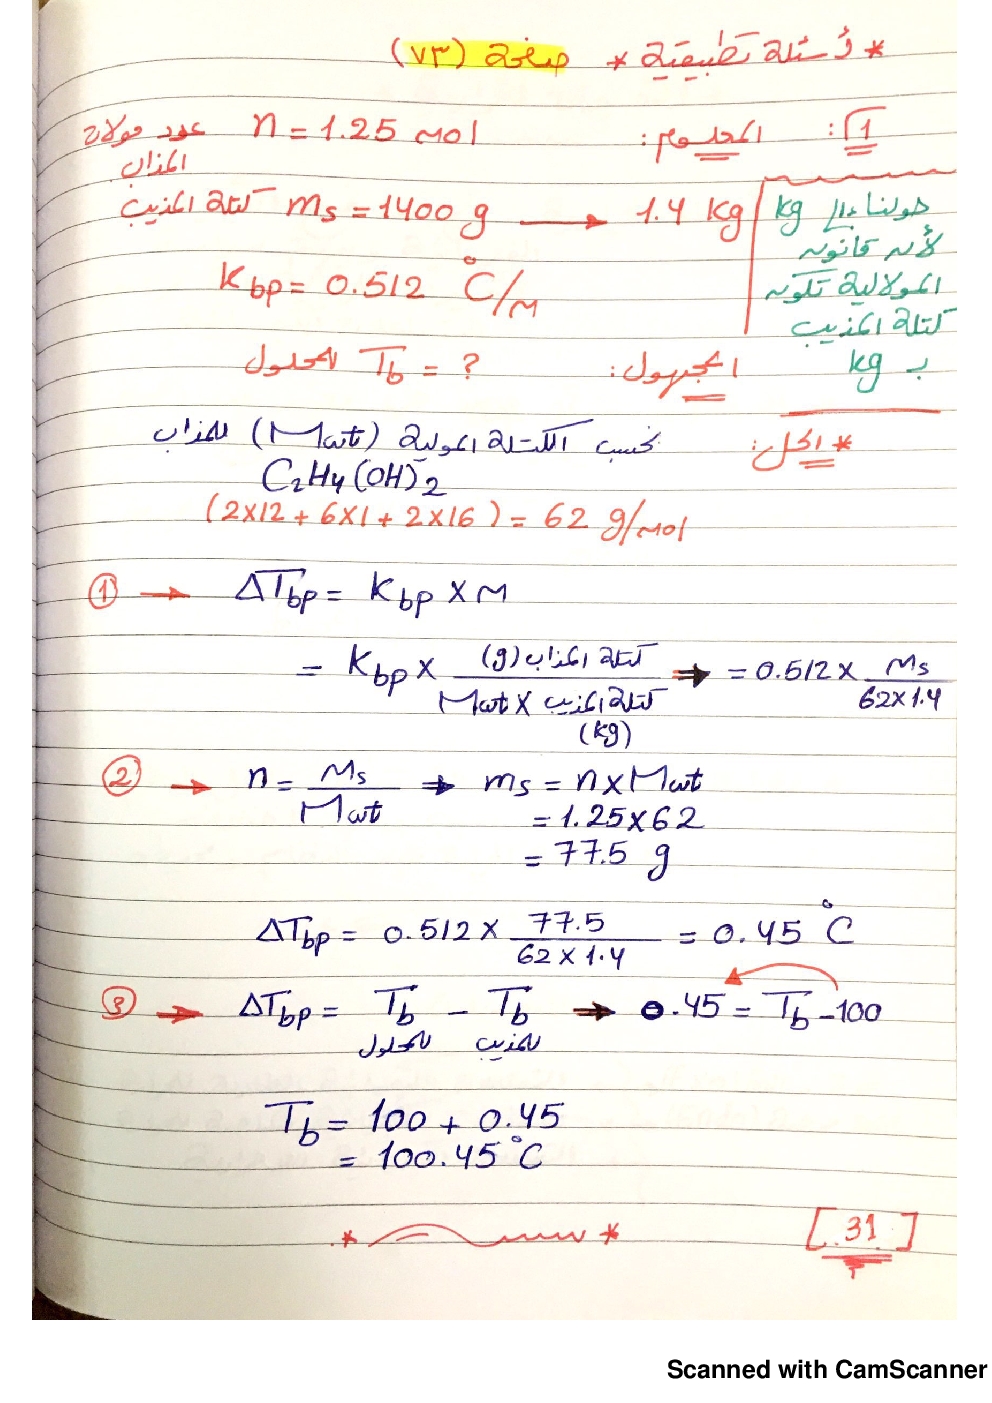 * أسئلة تطبيقية * صفحة (٧٣)
1: المعلوم: n = 1.25 mol عدد مولات المذاب
كتلة المذيب ms = 1400 g → 1.4 Kg
Kbp = 0.512 °C/m
حولنا إلى kg
لأنه قانون
المولالية تكون
كتلة المذيب
بـ kg
المجهول: Tb = ? للمحلول
* الحل: نحسب الكتلة المولية (Mwt) للمذاب
C₂H₄(OH)₂
(2×12 + 6×1 + 2×16) = 62 g/mol
① → ΔTbp = Kbp × m
= Kbp × كتلة المذاب (g) / Mwt × كتلة المذيب (kg) ⇒ = 0.512 × ms / 62×1.4
② → n = ms / Mwt → ms = n × Mwt
= 1.25×62
= 77.5 g
ΔTbp = 0.512 × 77.5 / 62 × 1.4 = 0.45 °C
③ → ΔTbp = Tb للمحلول − Tb للمذيب ⇒ 0.45 = Tb − 100
Tb = 100 + 0.45
= 100.45 °C
[31]
Scanned with CamScanner